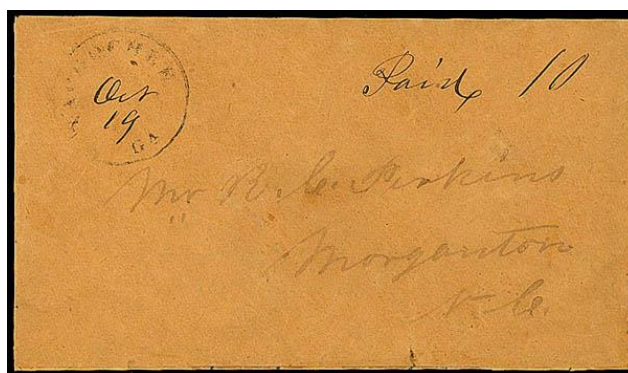 Oct
19
GA
Paid 10
Mr R. C. Perkins
Morganton
N. C.